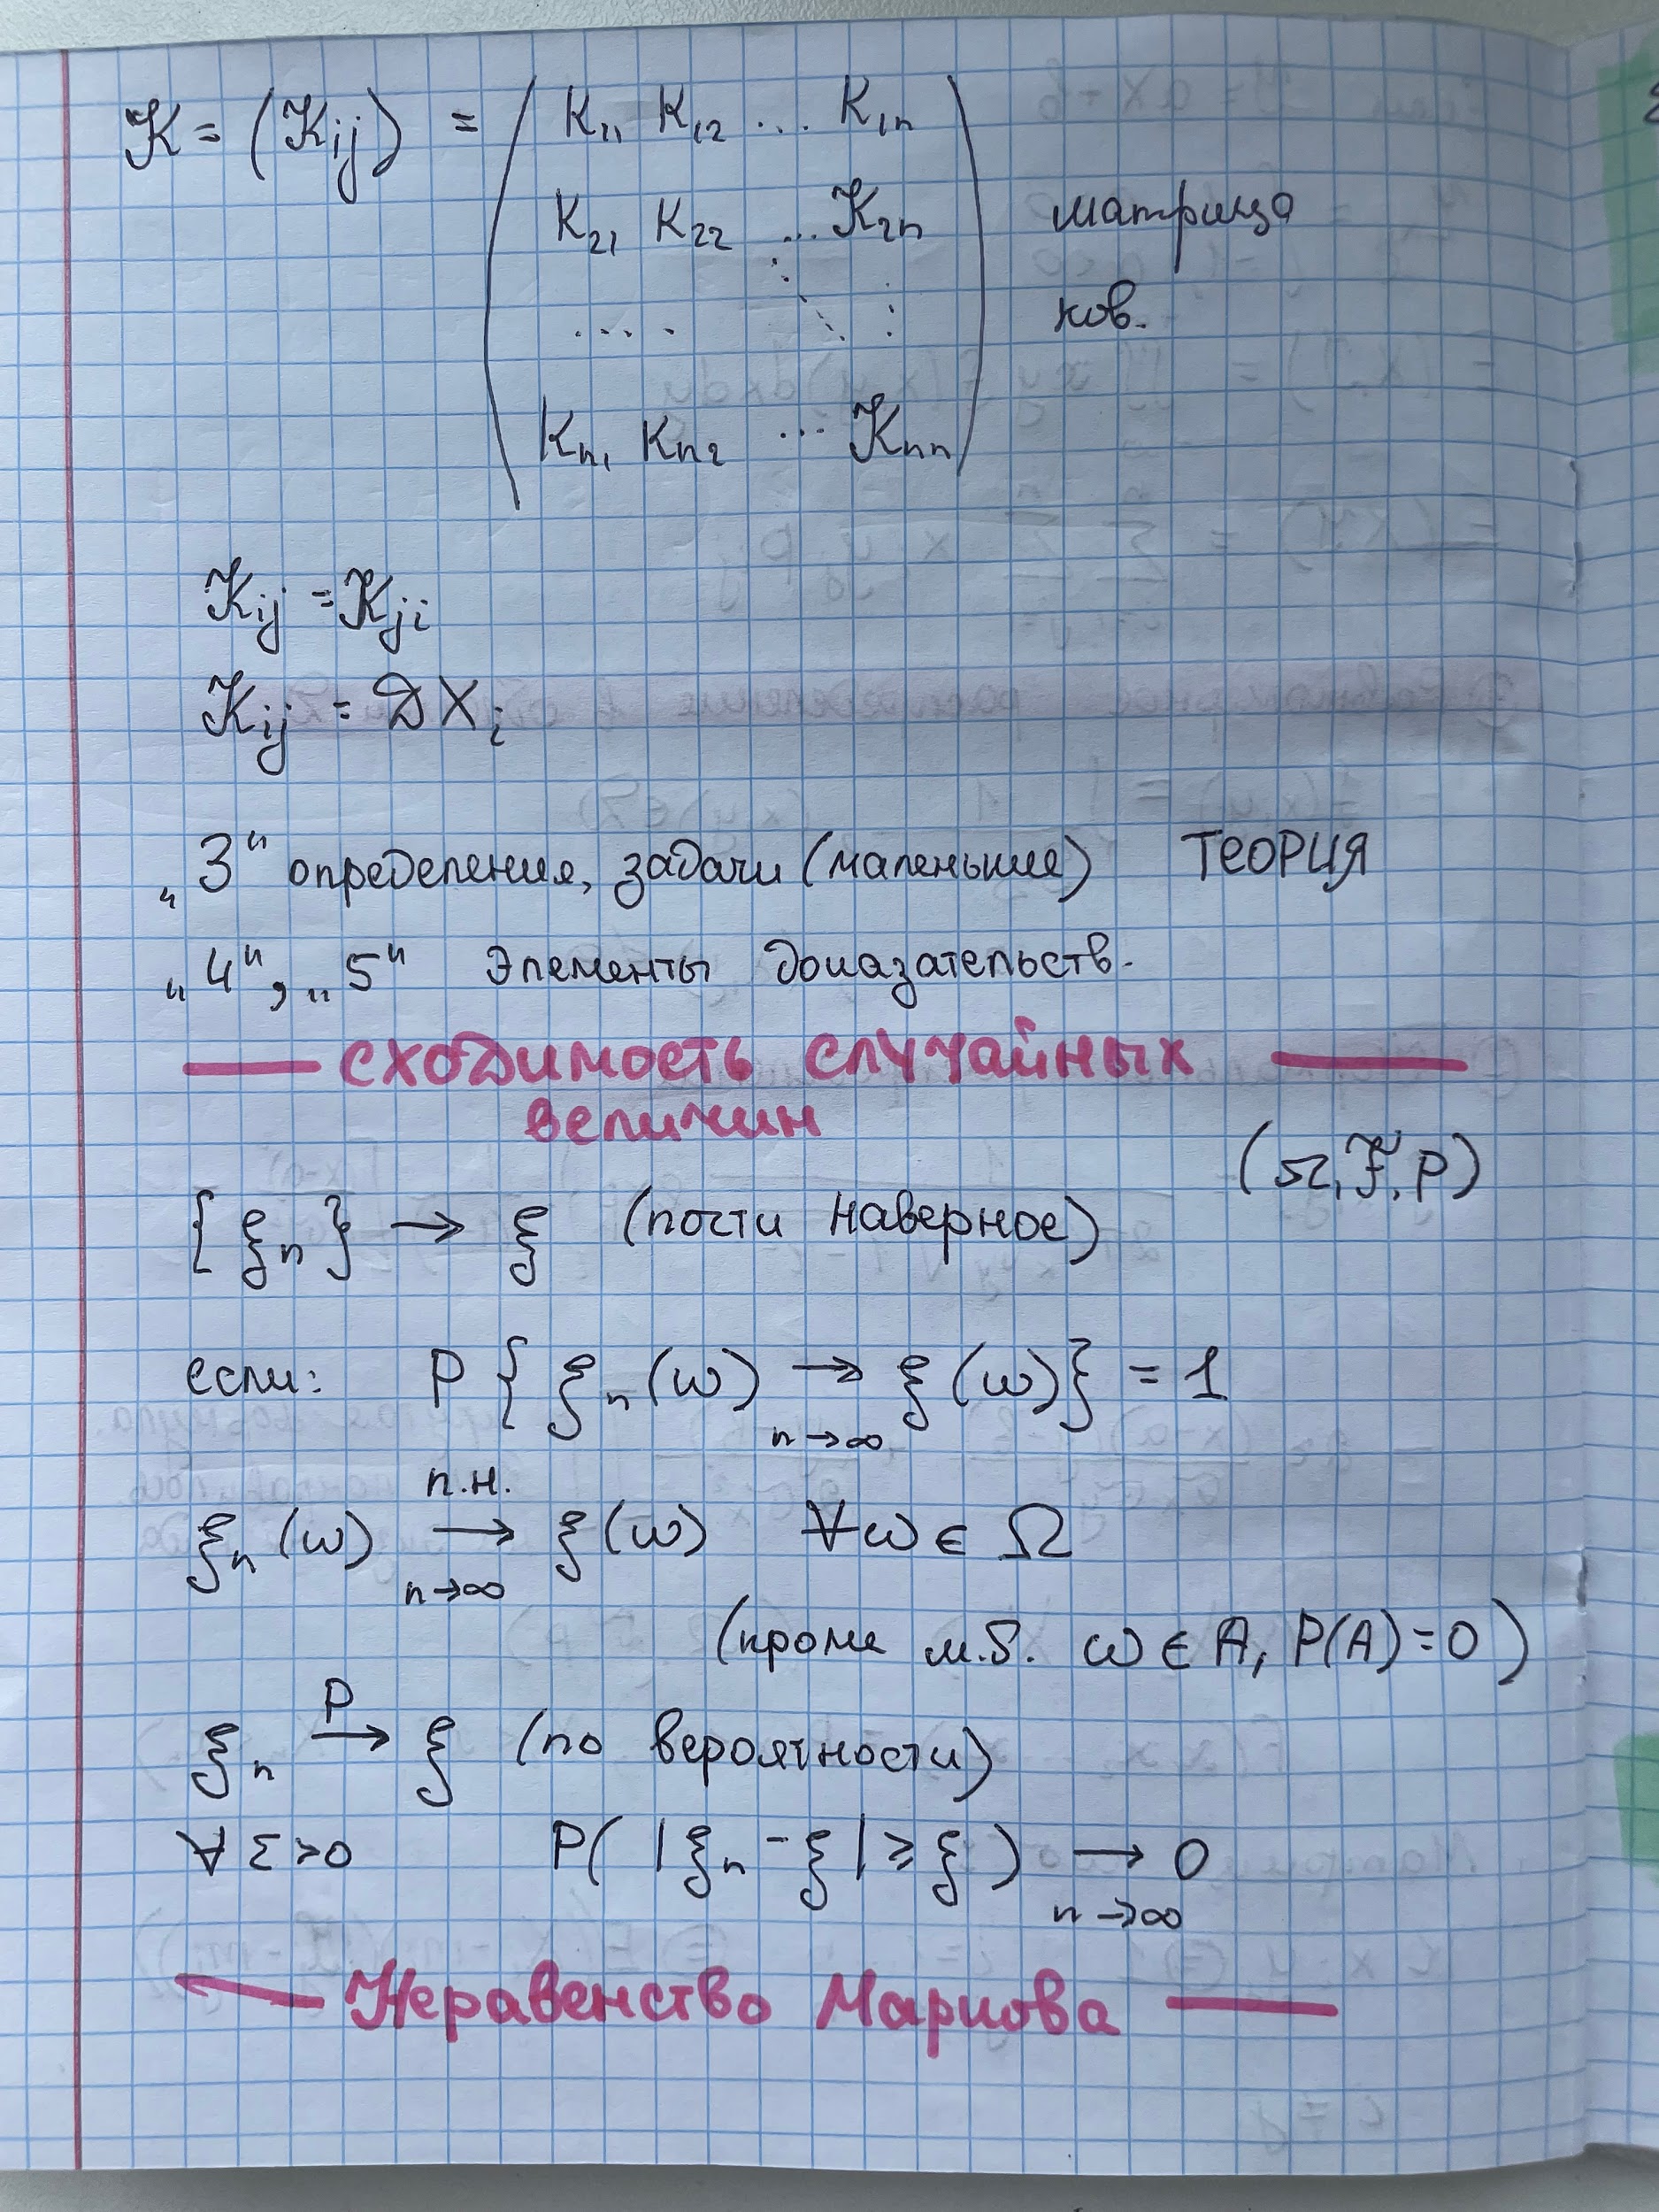 K = (Kij) = ( K11 K12 ... K1n
K21 K22 ... K2n матрица
.... ⋱ ⋮ ков.
Kn1 Kn2 ... Knn )
Kij = Kji
Kij = DXi
„3“ определения, задачи (маленькие) ТЕОРИЯ
„4“, „5“ Элементы доказательств.
— сходимость случайных —
величин
(Ω, F, P)
{ξn} → ξ (почти наверное)
если: P{ξn(ω) → ξ(ω)} = 1
n→∞
п.н.
ξn(ω) → ξ(ω) ∀ω ∈ Ω
n→∞
(кроме м.б. ω ∈ A, P(A)=0)
P
ξn → ξ (по вероятности)
∀ ε >0 P( |ξn - ξ| ≥ ξ ) → 0
n→∞
— Неравенство Маркова —